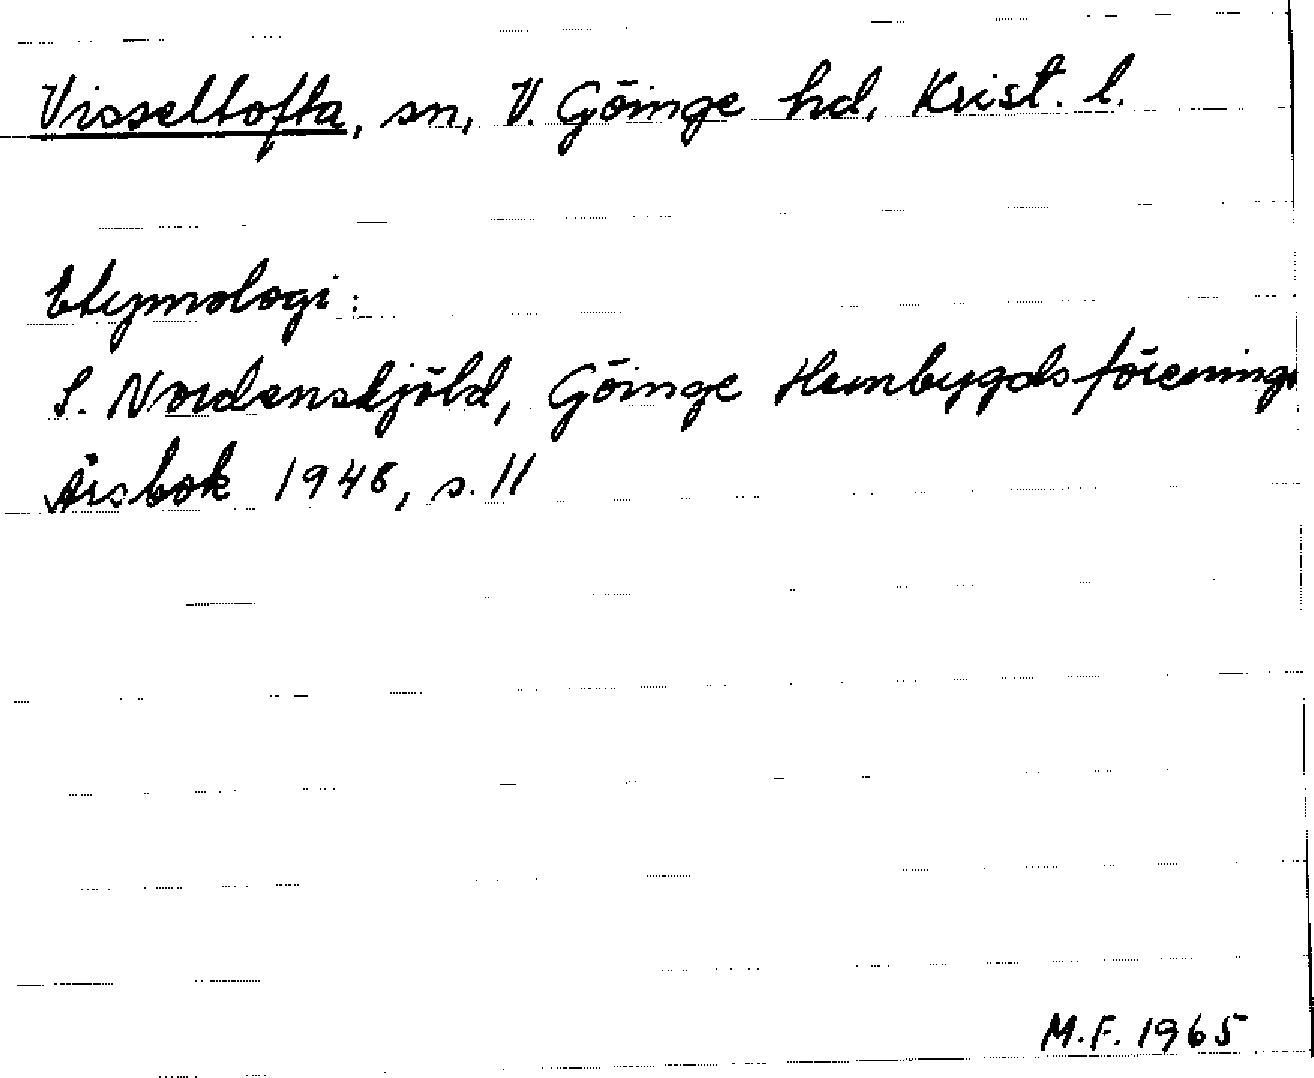 Visseltofta, sn, V. Göinge hd, Krist. l.
Etymologi:
S. Nordenskjöld, Göinge Hembygdsförenings
Årsbok 1948, s. 11
M.F. 1965